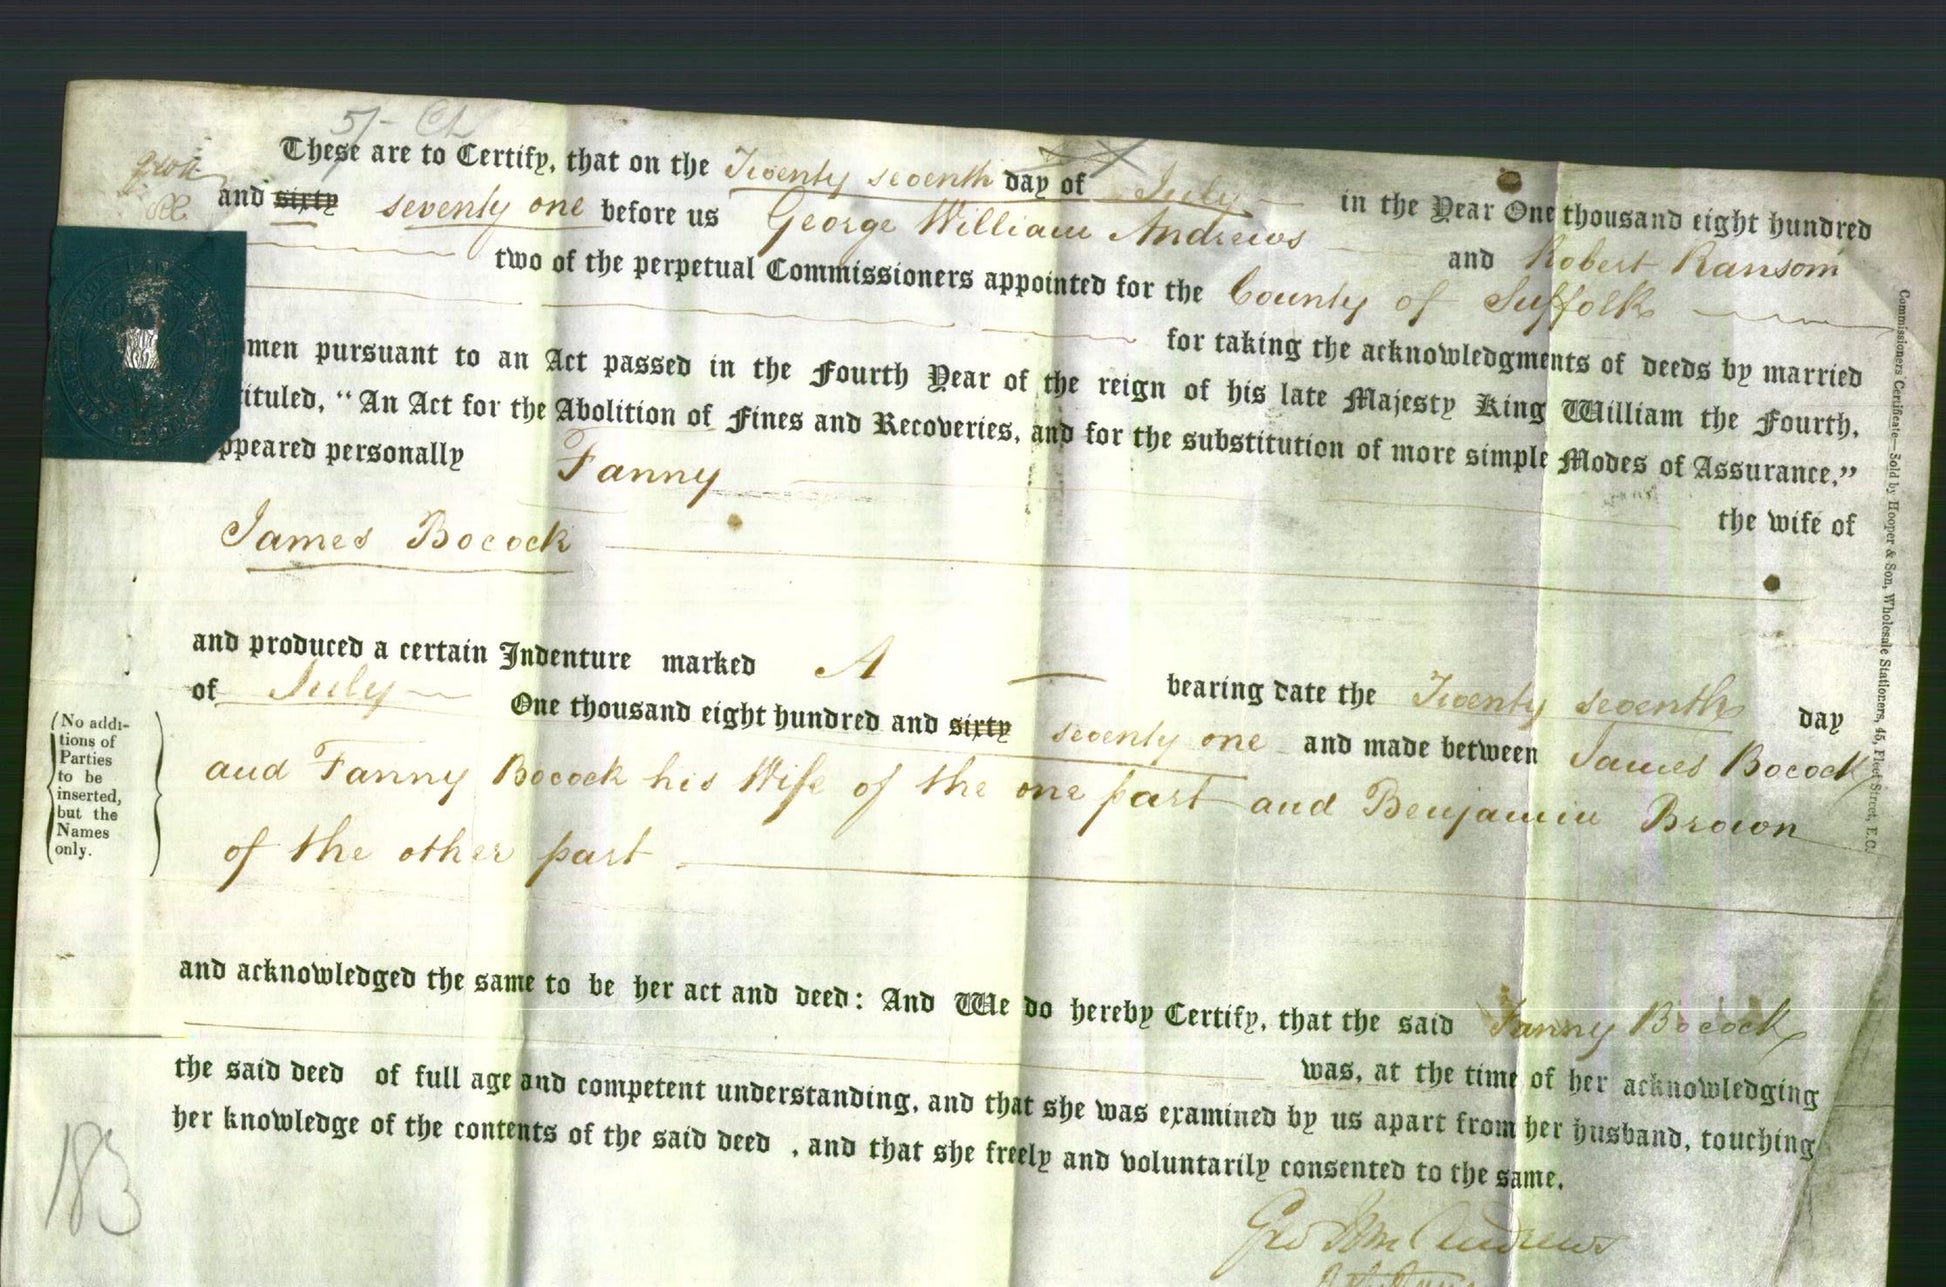 5/- Ch
These are to Certify, that on the Twenty seventh day of July in the Year One thousand eight hundred
and sixty seventy one before us George William Andrews and Robert Ransom
two of the perpetual Commissioners appointed for the County of Suffolk
for taking the acknowledgments of deeds by married
men pursuant to an Act passed in the Fourth Year of the reign of his late Majesty King William the Fourth,
ituled, "An Act for the Abolition of Fines and Recoveries, and for the substitution of more simple Modes of Assurance,"
ppeared personally Fanny
the wife of
James Bocock
and produced a certain Indenture marked A bearing date the Twenty seventh day
of July One thousand eight hundred and sixty seventy one and made between James Bocock
and Fanny Bocock his Wife of the one part and Benjamin Brown
of the other part
(No addi-
tions of
Parties
to be
inserted,
but the
Names
only.)
and acknowledged the same to be her act and deed: And We do hereby Certify, that the said Fanny Bocock
was, at the time of her acknowledging
the said deed of full age and competent understanding, and that she was examined by us apart from her husband, touching
her knowledge of the contents of the said deed , and that she freely and voluntarily consented to the same.
Geo Wm Andrews
183
Commissioners' Certificate—Sold by Hooper & Son, Wholesale Stationers, 45, Fleet Street, E.C.